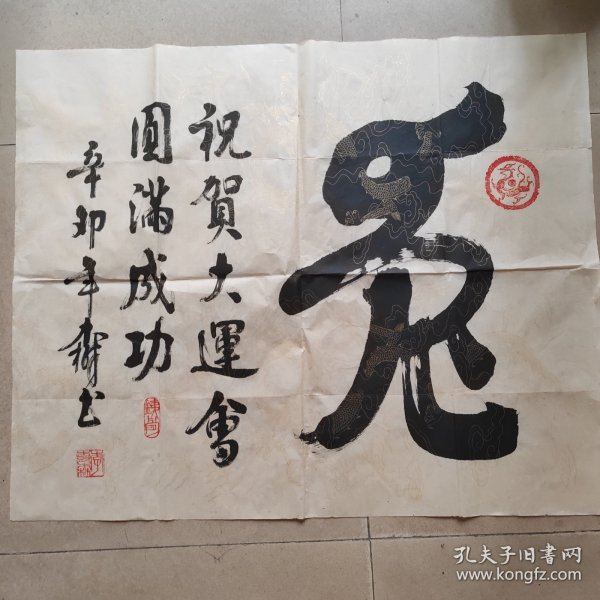 祝賀大運會
圓滿成功
辛卯年
书
孔夫子旧书网
www.kongfz.com